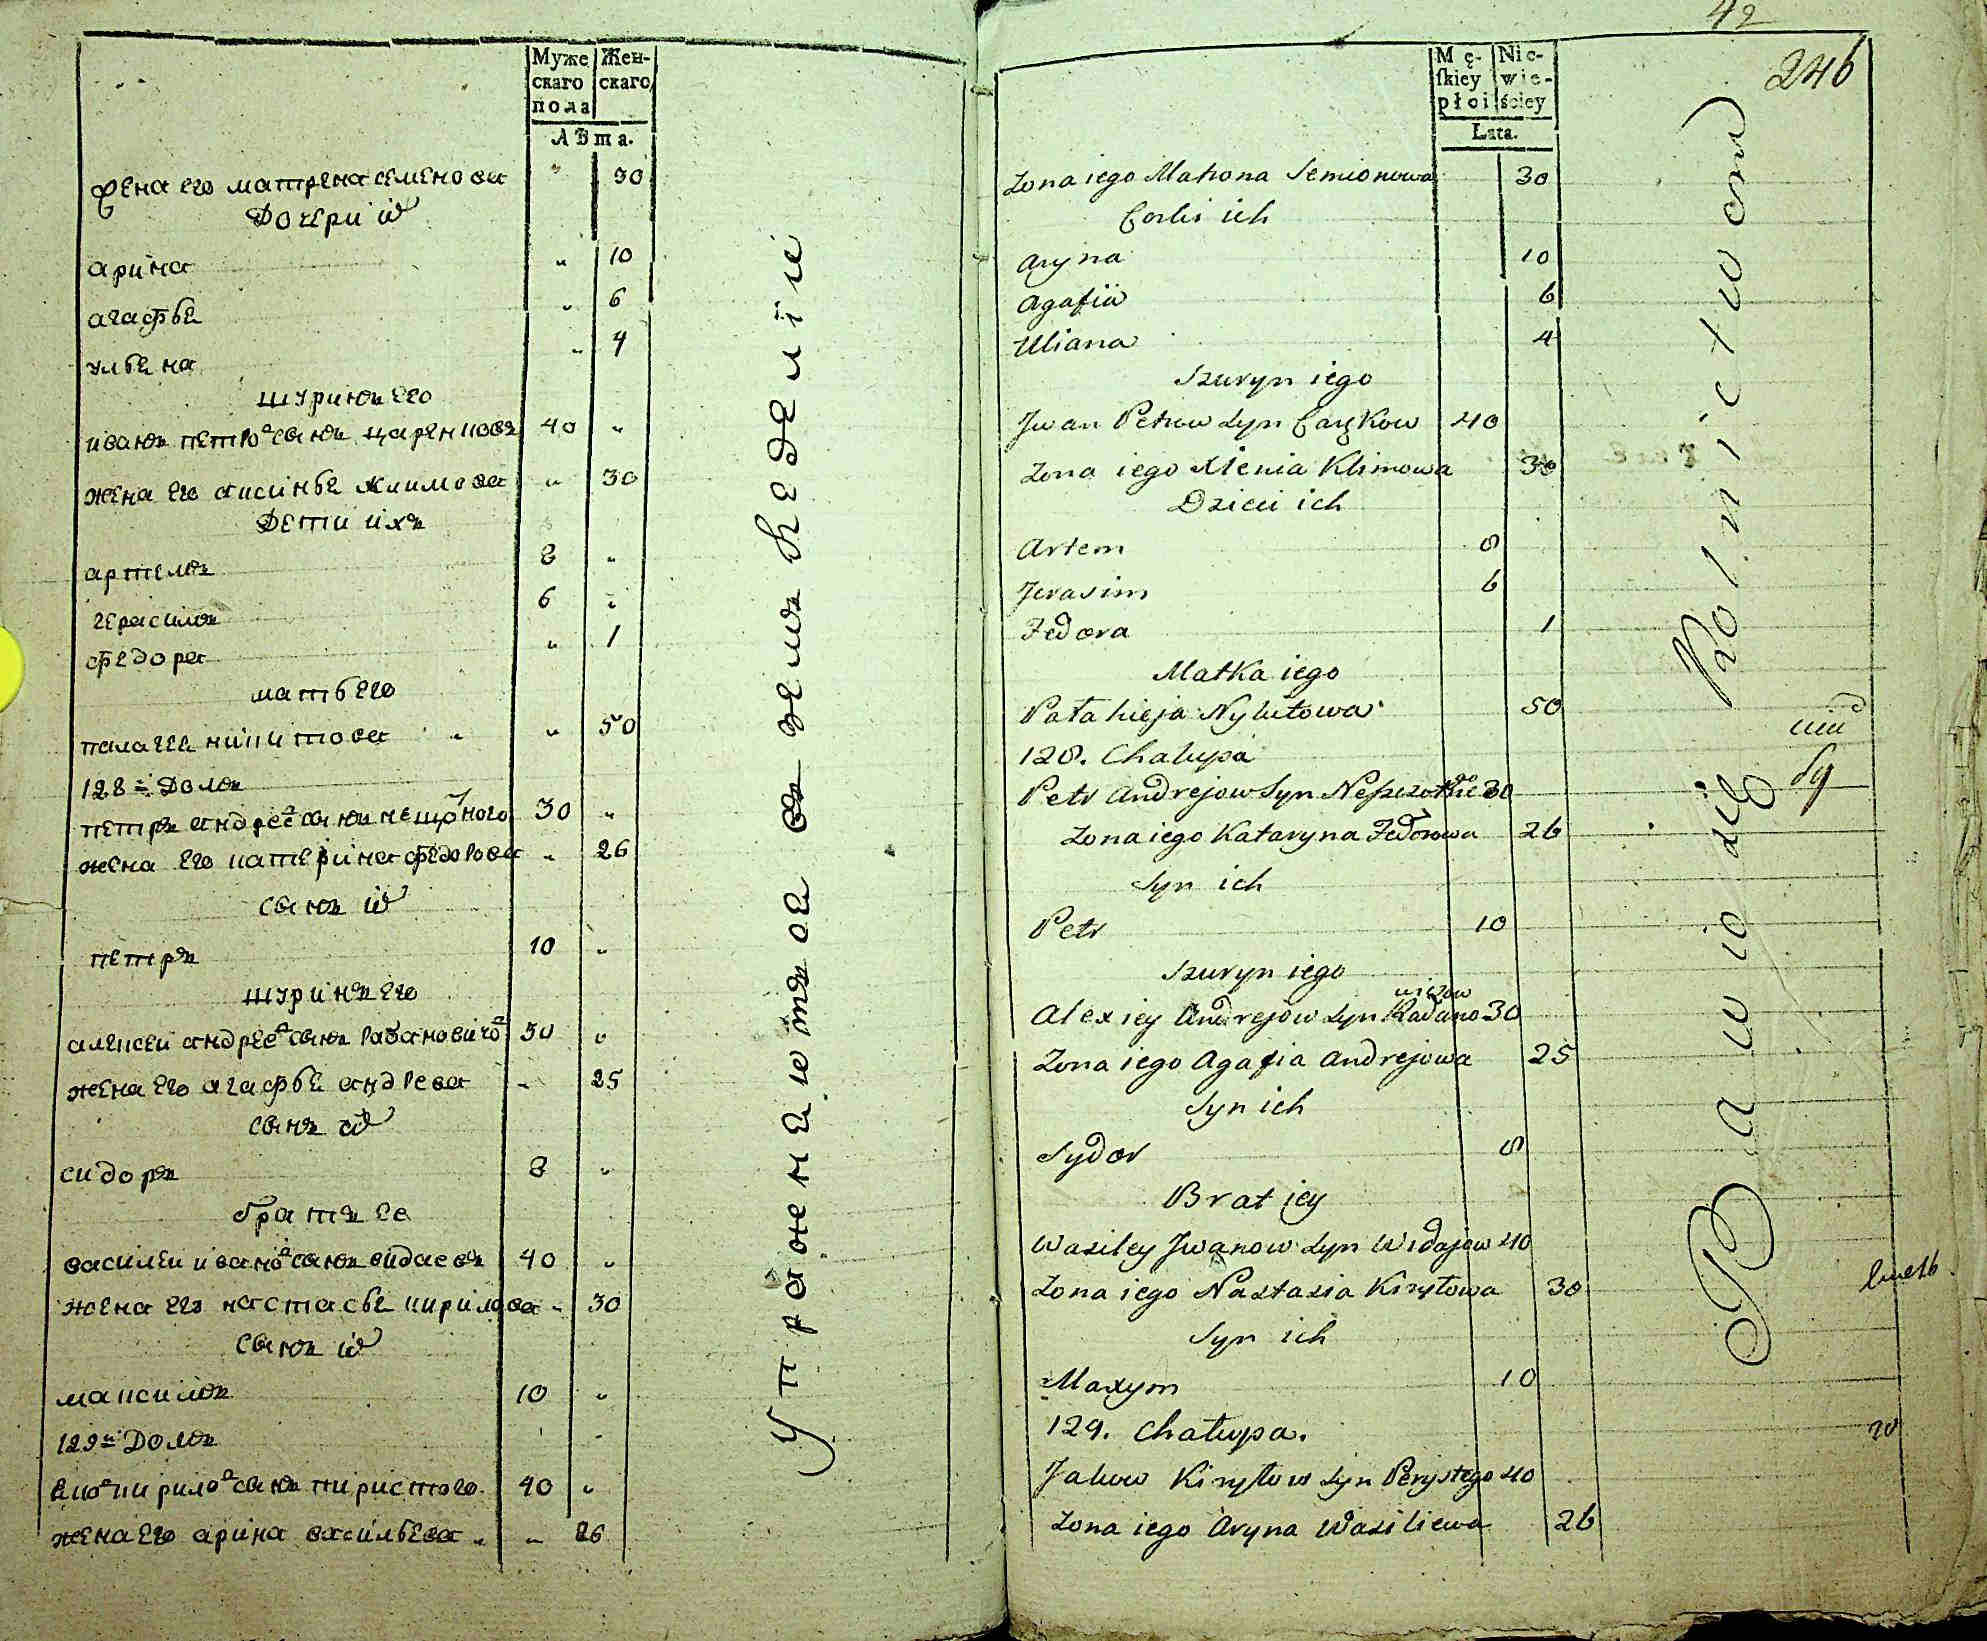 Муже
скаго
пола
Жен-
скаго
лѣта.
жена его матрена семенова " 30
дочери их
арина " 10
агафья " 6
ульяна " 4
шуринъ его
иванъ петро в сынъ царенковъ 40 "
жена его аксинья климова " 30
дети ихъ
артемъ 8 "
герасимъ 6 "
федора " 1
мать его
палагея никитова " 50
128 й домъ
петръ андреев сынъ нещотного 30 "
жена его катерина федорова " 26
сынъ их
петръ 10 "
шуринъ его
алексеи андреев сынъ рабановичов 30 "
жена его агафья андрева " 25
сынъ их
сидоръ 8 "
братъ ее
василеи иванов сынъ видаевъ 40 "
жена его настасья кирилова " 30
сынъ их
максимъ 10 "
129 й домъ
яков кирилов сынъ пиристого 40 "
жена его арина васильева " 26
упражнаютца въ земъ неделии
42
246
Mę-
skiey
płoi
Nie-
wie-
ściey
Lata.
Zona iego Matrona Semionowa 30
Corki ich
Aryna 10
Agafiia 6
Uliana 4
Szuryn iego
Jwan Petrow Syn Carykow 40
Zona iego Xienia Klimowa 30
Dzieci ich
Artem 8
Jerasim 6
Fedora 1
Matka iego
Pałahieja Nykitowa 50
128. Chalupa
Petr Andrejow Syn Neszczotne 30
Zona iego Kataryna Fedorowa 26
Syn ich
Petr 10
Szuryn iego
Alexiey Andrejow Syn Rabano 30
wiczow
Zona iego Agafia Andrejowa 25
Syn ich
Sydor 8
Brat iey
Wasiley Jwanow Syn Widajow 40
Zona iego Nastasia Kiryłowa 30
Syn ich
Maxym 10
129. Chałupa.
Jakow Kiryłow Syn Perystego 40
Zona iego Aryna Wasiliewa 26
Bawią się Rolnictwem